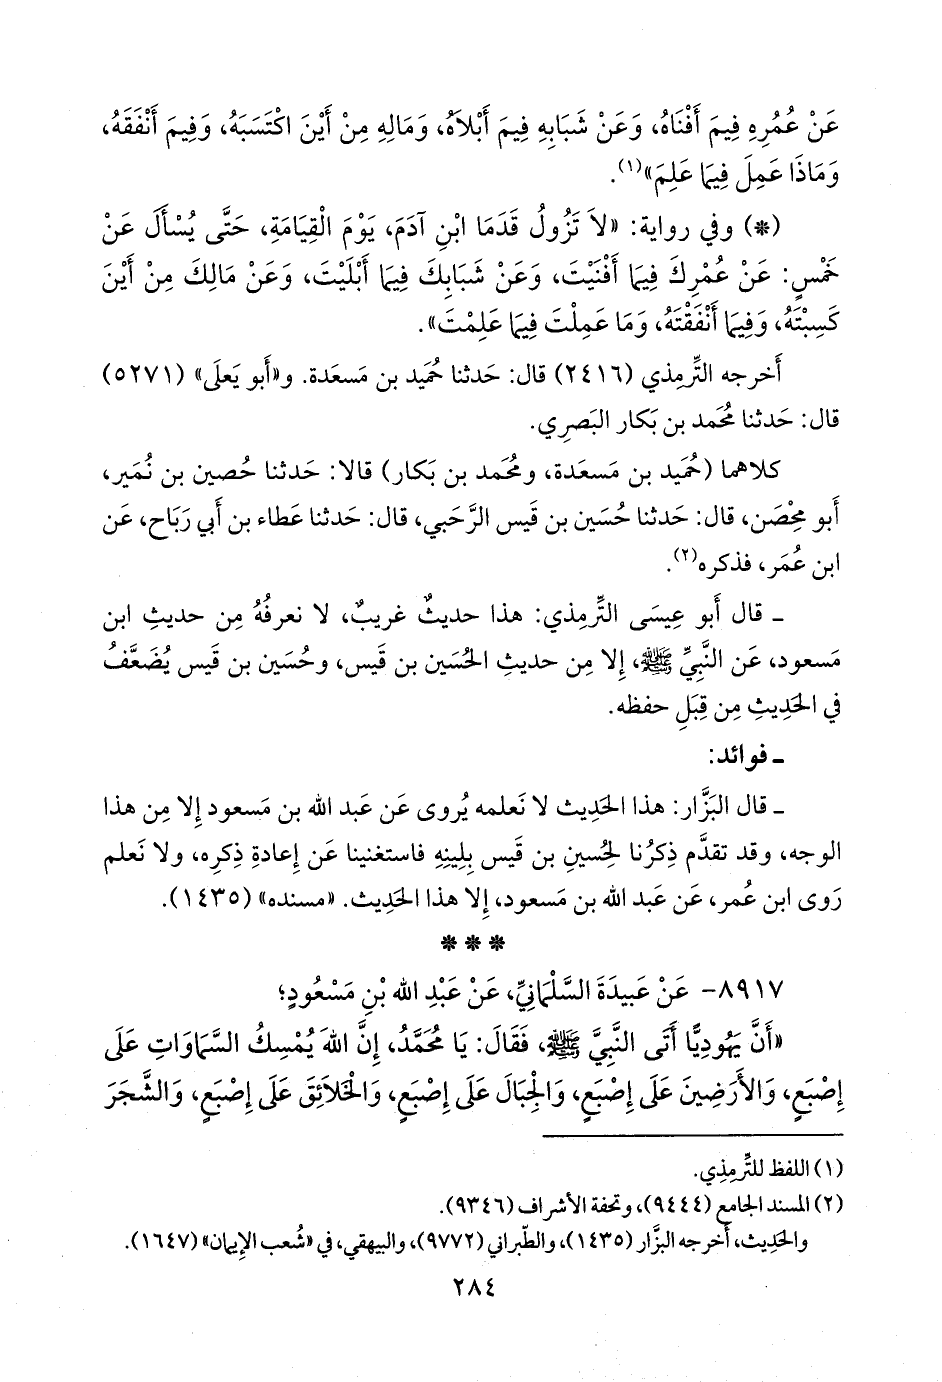 عَنْ عُمُرِهِ فِيمَ أَفْنَاهُ، وَعَنْ شَبَابِهِ فِيمَ أَبْلاَهُ، وَمَالِهِ مِنْ أَيْنَ اكْتَسَبَهُ، وَفِيمَ أَنْفَقَهُ،
وَمَاذَا عَمِلَ فِيمَا عَلِمَ»(١).
(*) وفي رواية: «لاَ تَزُولُ قَدَمَا ابْنِ آدَمَ، يَوْمَ الْقِيَامَةِ، حَتَّى يُسْأَلَ عَنْ
خَمْسٍ: عَنْ عُمْرِكَ فِيمَا أَفْنَيْتَ، وَعَنْ شَبَابِكَ فِيمَا أَبْلَيْتَ، وَعَنْ مَالِكَ مِنْ أَيْنَ
كَسِبْتَهُ، وَفِيمَا أَنْفَقْتَهُ، وَمَا عَمِلْتَ فِيمَا عَلِمْتَ».
أَخرجه التِّرمِذي (٢٤١٦) قال: حَدثنا حُمَيد بن مَسعَدة. و«أَبو يَعلَى» (٥٢٧١)
قال: حَدثنا مُحَمد بن بَكار البَصرِي.
كلاهما (حُمَيد بن مَسعَدة، ومُحَمد بن بَكار) قالا: حَدثنا حُصين بن نُمَير،
أَبو مِحْصَن، قال: حَدثنا حُسَين بن قَيس الرَّحَبي، قال: حَدثنا عَطاء بن أَبي رَبَاح، عَن
ابن عُمَر، فذكره(٢).
ـ قال أَبو عِيسَى التِّرمِذي: هذا حديثٌ غريبٌ، لا نعرفُهُ مِن حديثِ ابن
مَسعود، عَن النَّبيِّ ﷺ، إِلا مِن حديثِ الحُسَين بن قَيس، وحُسَين بن قَيس يُضَعَّفُ
في الحَدِيثِ مِن قِبَلِ حفظه.
ـ فوائد:
ـ قال البَزَّار: هذا الحَدِيث لا نَعلمه يُروى عَن عَبد الله بن مَسعود إِلا مِن هذا
الوجه، وقد تقدَّم ذِكرُنا لحُسينِ بن قَيس بِلِينِهِ فاستغنينا عَن إِعادةِ ذِكرِه، ولا نَعلم
رَوى ابن عُمر، عَن عَبد الله بن مَسعود، إِلا هذا الحَدِيث. «مسنده» (١٤٣٥).
* * *
٨٩١٧- عَنْ عَبِيدَةَ السَّلْمَانِيِّ، عَنْ عَبْدِ الله بْنِ مَسْعُودٍ؛
«أَنَّ يَهُودِيًّا أَتَى النَّبِيَّ ﷺ، فَقَالَ: يَا مُحَمَّدُ، إِنَّ اللهَ يُمْسِكُ السَّمَاوَاتِ عَلَى
إِصْبَعٍ، وَالأَرَضِينَ عَلَى إِصْبَعٍ، وَالْجِبَالَ عَلَى إِصْبَعٍ، وَالْخَلاَئِقَ عَلَى إِصْبَعٍ، وَالشَّجَرَ
(١) اللفظ للتِّرمِذِي.
(٢) المسند الجامع (٩٤٤٤)، وتحفة الأشراف (٩٣٤٦).
والحَدِيث، أَخرجه البزَّار (١٤٣٥)، والطَّبراني (٩٧٧٢)، والبيهقي، في «شُعب الإِيمان» (١٦٤٧).
٢٨٤